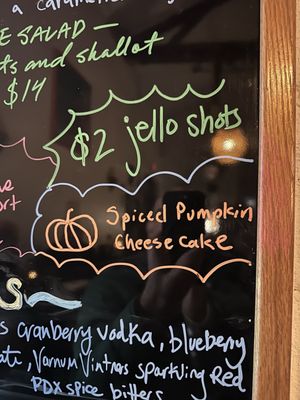 a caramel
E SALAD –
ts and shallot
$14
$2 jello shots
Spiced Pumpkin
Cheese Cake
s
s cranberry vodka, blueberry
ate, Varnum Vintners sparkling Red
PDX spice bitters